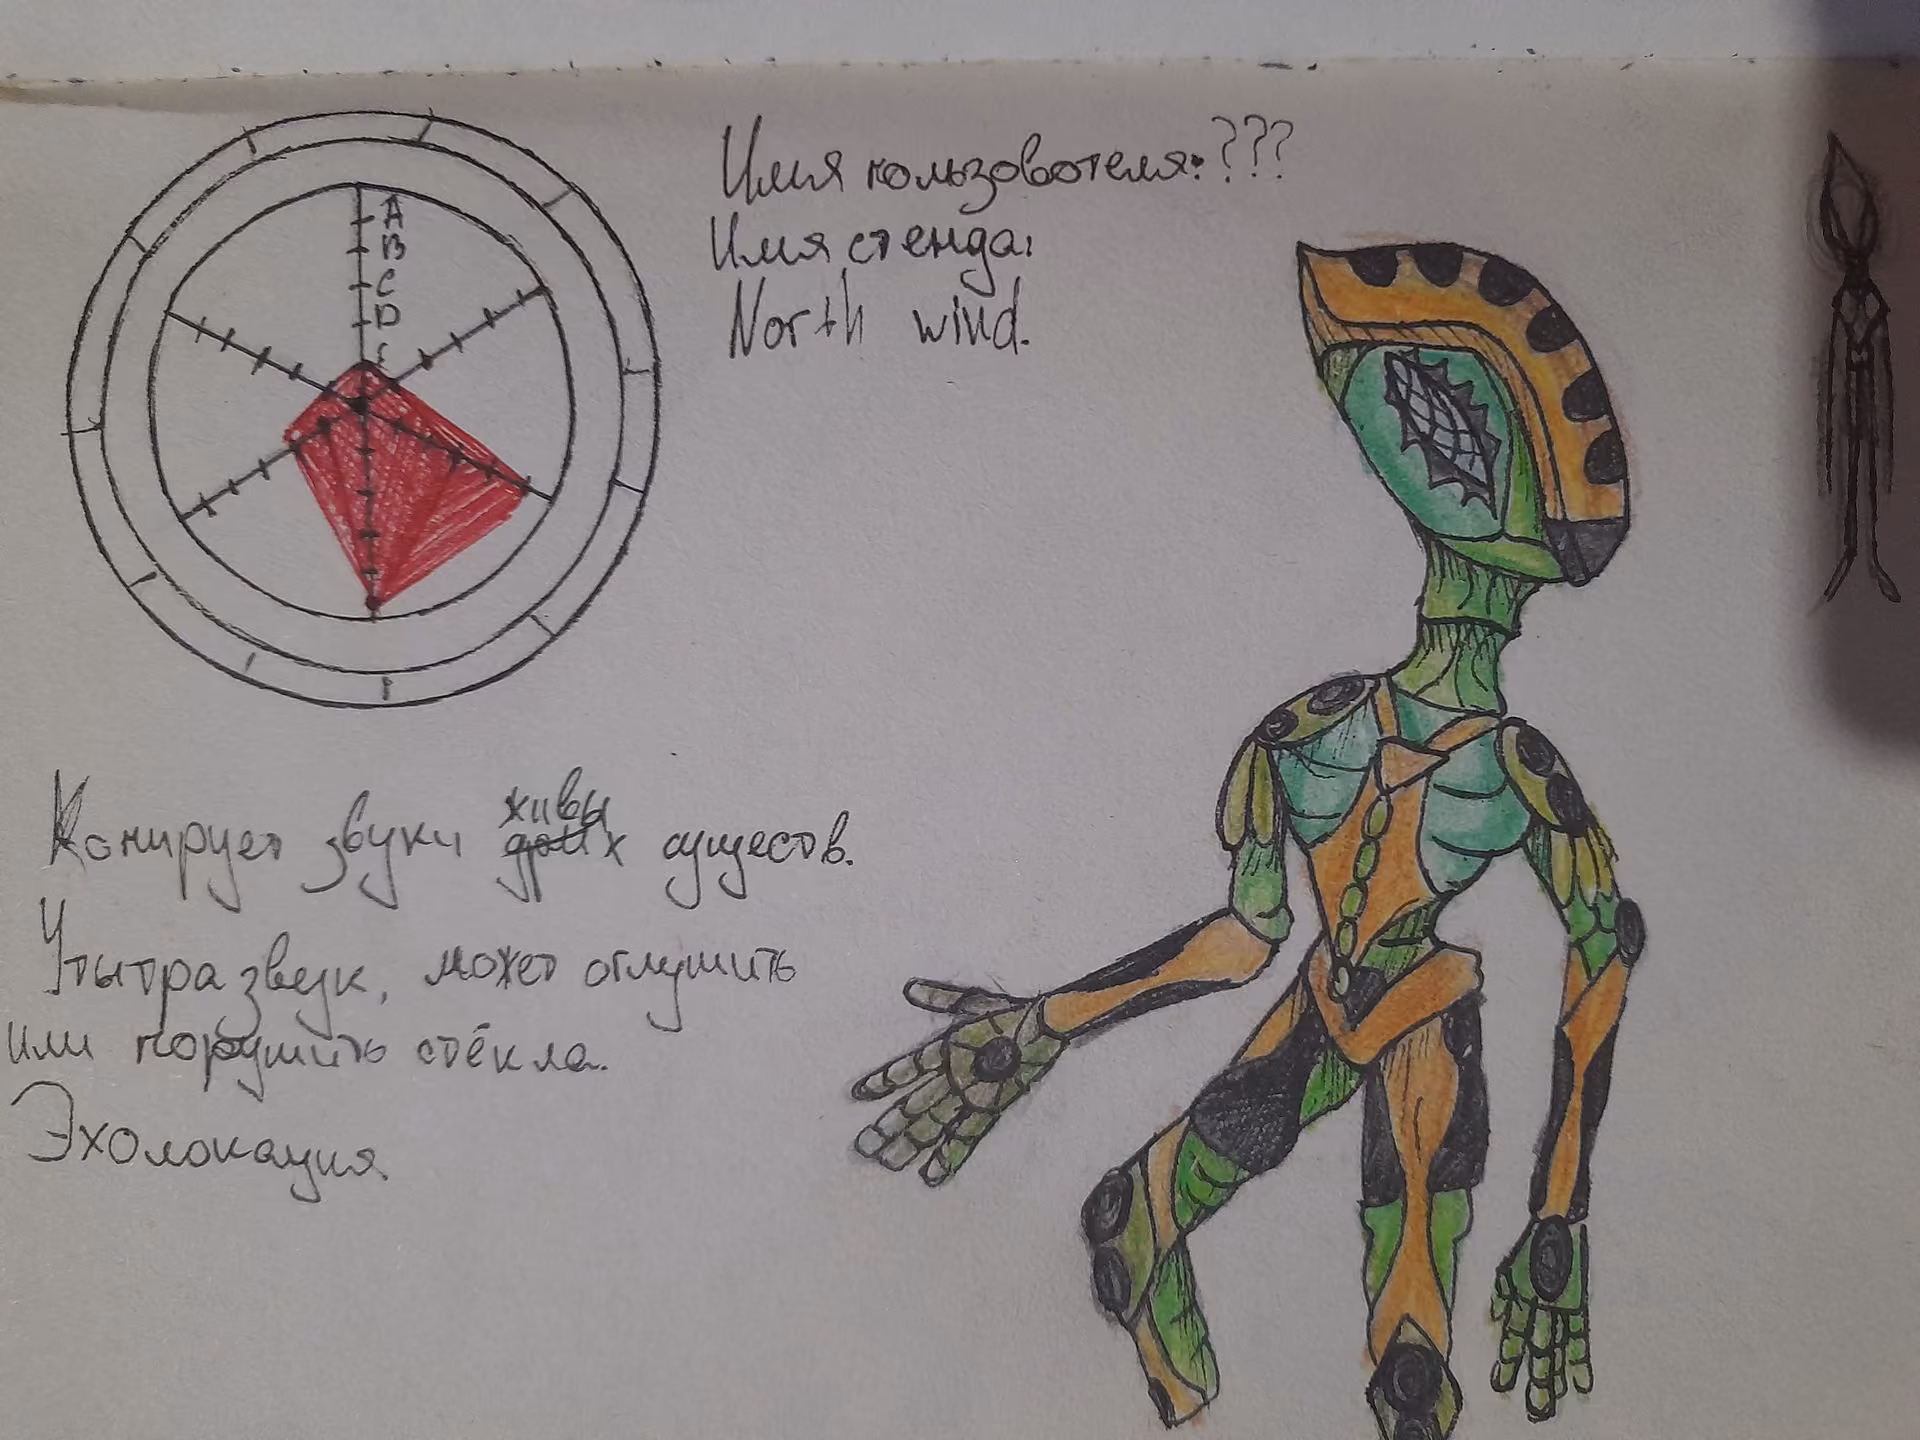 A
B
C
D
E
Имия пользовотеля:???
Имия стенда:
North wind.
Копирует звуки живых сущестов.
Ультразвук, может оглушить
или порушить стёкла.
Эхолокация